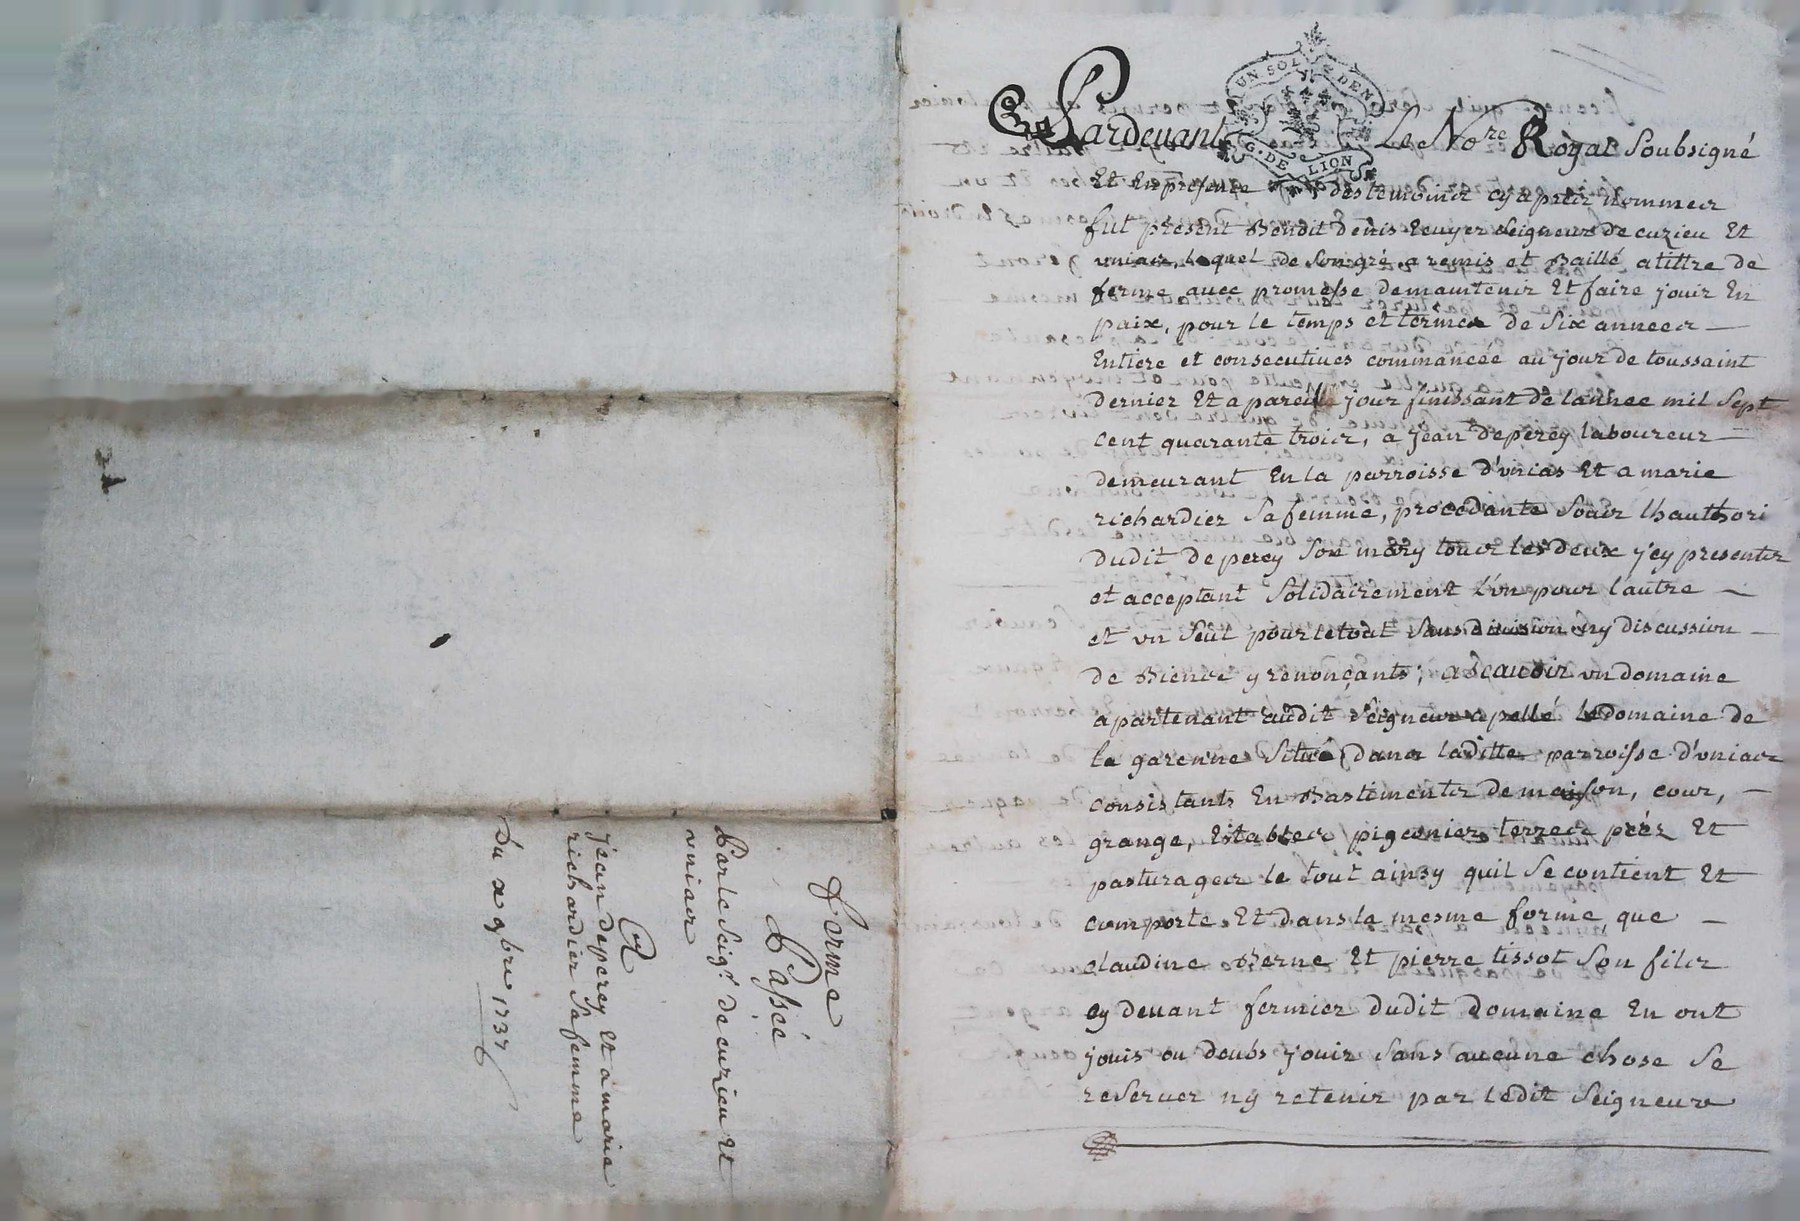 Ferme
Passée
Par le Seigr. de curzieu Et
uniacs
A
jean deperey Et a marie
richardier Sa femme
Du 9bre 1737
UN SOL DEN
G. DE LION
Pardevant Le Nore Royal Soubsigné
Et En presence des temoins cy apres nommes
fut present Benoit denis Ecuyer Seigneur de curzieu Et
unias, lequel de Son gré a remis et Baillé a tittre de
ferme avec promesse de maintenir Et faire jouir En
paix, pour le temps et termes de Six années
Entiere et consecutives commancée au jour de toussaint
dernier Et a pareille jour finissant de lannee mil Sept
cent quarante trois, a jean deperey laboureur
demeurant En la parroisse d'unias Et a marie
richardier Sa femme, procedante Soubs lhauthori
dudit deperey Son mary tous les deux j'cy presents
et acceptant Solidairement l'un pour l'autre
et un Seul pour le tout Sans division ny discussion
de Biens y renonçants; a Scavoir un domaine
apartenant audit Seigneur apellé le domaine de
la garenne Situé dans laditte parroisse d'unias
consistants En Bastiments de maison, cour,
grange, Estables, pigeonier, terres préz Et
pasturages le tout ainsy quil Se contient Et
comporte Et dans la mesme forme que
claudine Berne Et pierre tissot Son fils
cy devant fermier dudit domaine En ont
jouis ou deubs jouir Sans aucune chose Se
reserver ny retenir par ledit Seigneur